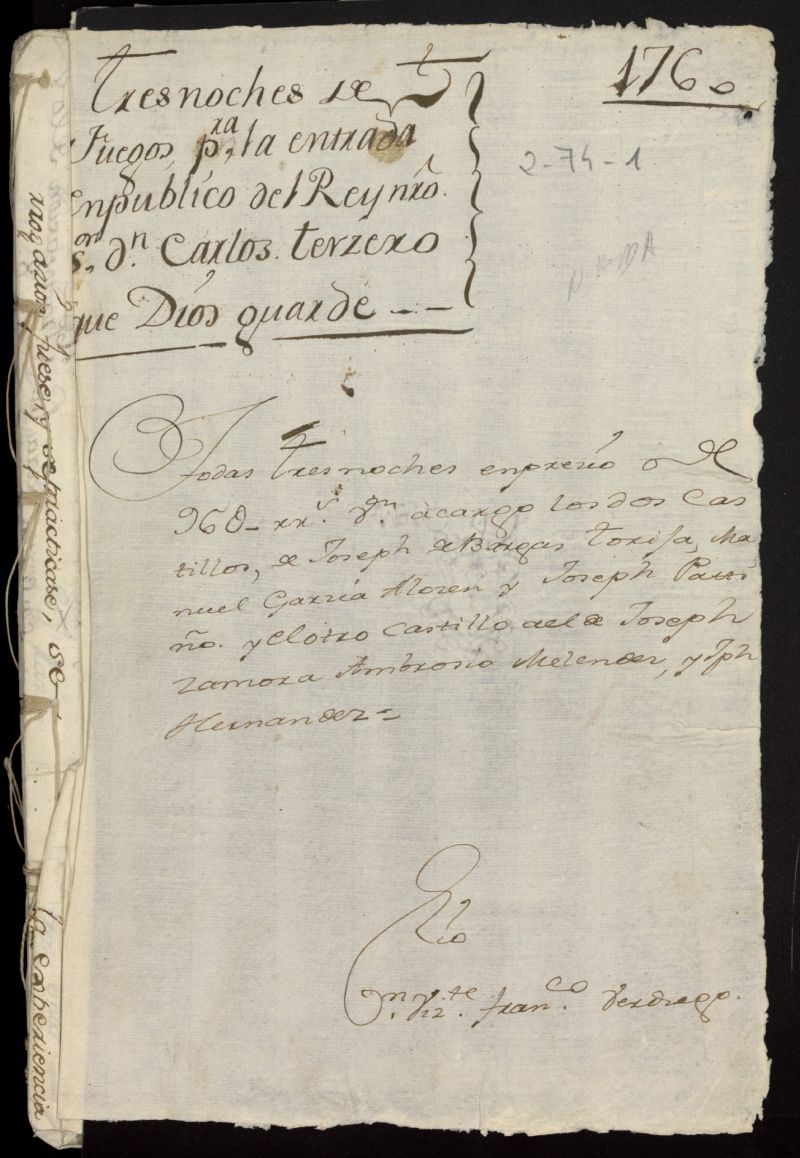 1760
tres noches de
Fuegos, pra. la entrada
en publico del Rey nro.
sor. dn. Carlos. terzero
que Dios guarde
2-74-1
NADA
Todas tres noches en prezio de
960 rrs. vn. à cargo los dos Cas
tillos, de Joseph de Bargas torija, Ma
nuel Garzia Aloren y Joseph Patri
ño. y el otro Castillo del de Joseph
zamora Ambrosio Melendez, y Jph
Hernandez
SSrio
Dn. Vizte. Franco. Verdugo.
fuese, y se practicase, se
la experiencia